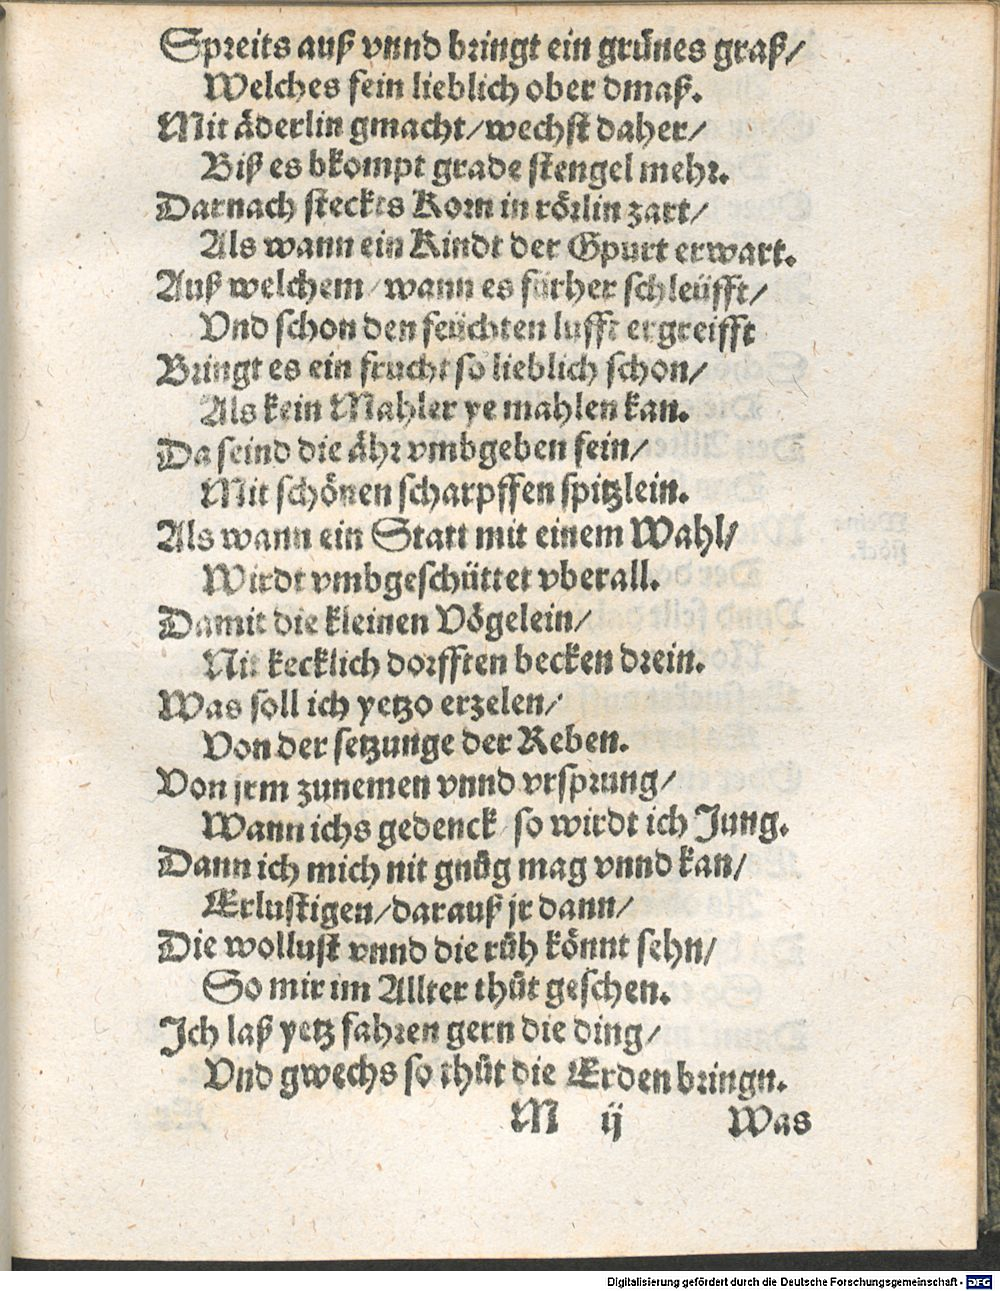 Spreits auß vnnd bringt ein grünes graß/
Welches fein lieblich ober dmaß.
Mit äderlin gmacht/wechst daher/
Biß es bkompt grade stengel mehr.
Darnach steckts Korn in rörlin zart/
Als wann ein Kindt der Gpurt erwart.
Auß welchem/wann es fürher schleüfft/
Vnd schon den feüchten lufft ergreifft
Bringt es ein frucht so lieblich schon/
Als kein Mahler ye mahlen kan.
Da seind die ähr vmbgeben fein/
Mit schönen scharpffen spitzlein.
Als wann ein Statt mit einem Wahl/
Wirdt vmbgeschüttet vberall.
Damit die kleinen Vögelein/
Nit kecklich dorfften becken drein.
Was soll ich yetzo erzelen/
Von der setzunge der Reben.
Von jrm zunemen vnnd vrsprung/
Wann ichs gedenck/so wirdt ich Jung.
Dann ich mich nit gnůg mag vnnd kan/
Erlustigen/darauß jr dann/
Die wollust vnnd die růh könnt sehn/
So mir im Allter thůt geschen.
Ich laß yetz fahren gern die ding/
Vnd gwechs so thůt die Erden bringn.
M ij Was
Digitalisierung gefördert durch die Deutsche Forschungsgemeinschaft - DFG